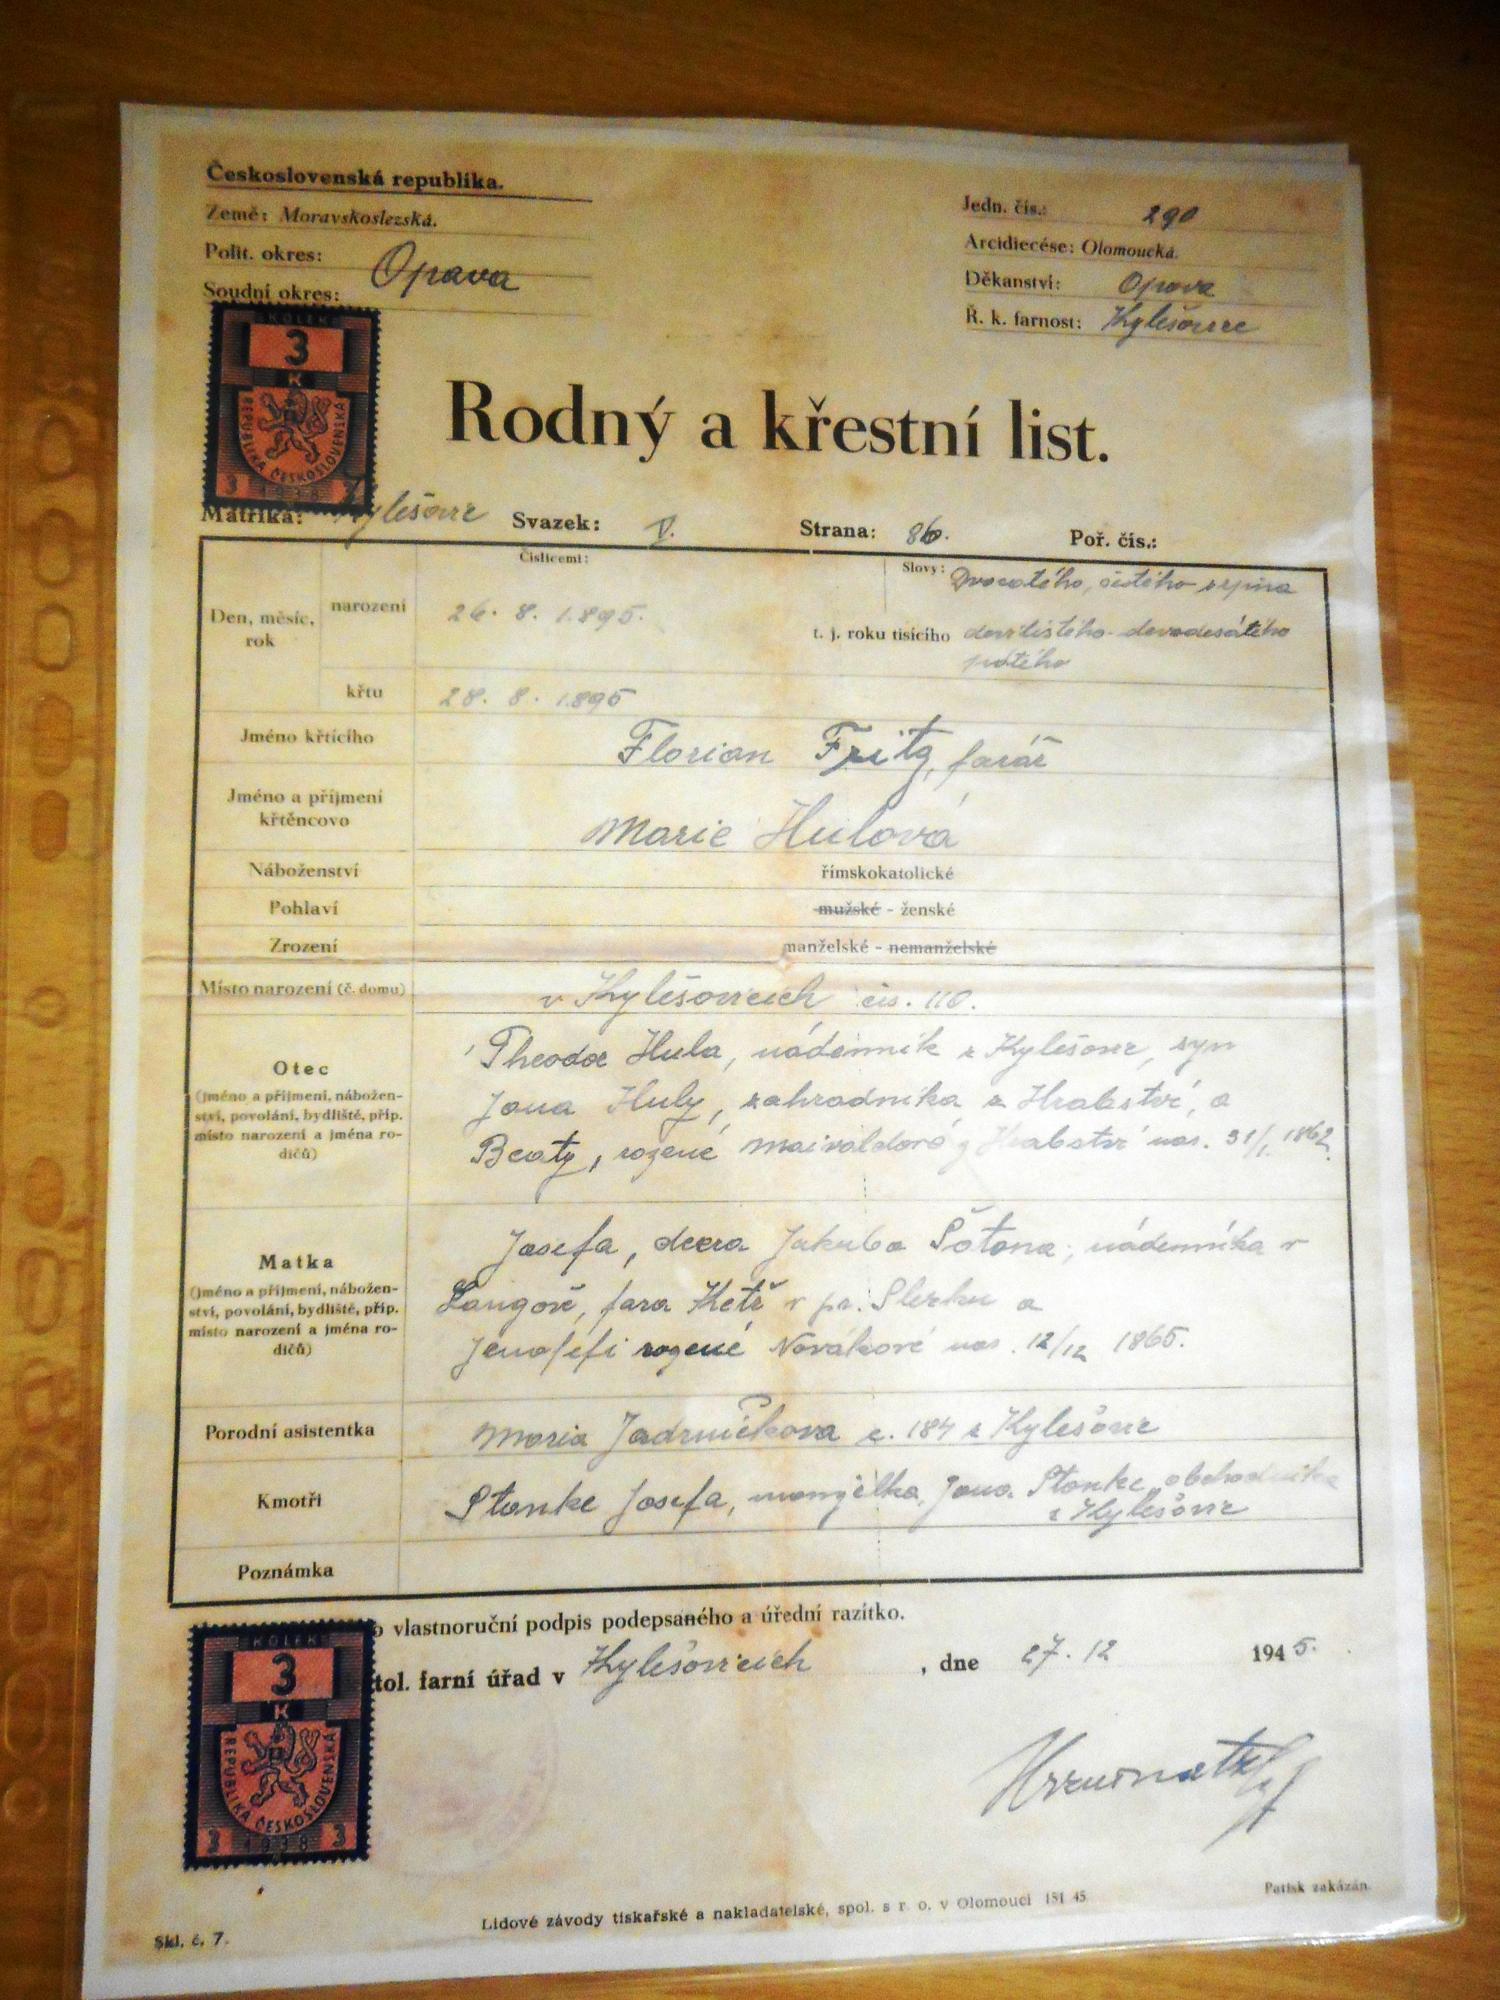 Československá republika.
Země: Moravskoslezská.
Polit. okres: Opava
Soudní okres:
Jedn. čís.: 290
Arcidiecése: Olomoucká.
Děkanství: Opava
Ř. k. farnost: Kylešovce
KOLEK
3
K
REPUBLIKA ČESKOSLOVENSKÁ
3 1938 3
Rodný a křestní list.
Matrika: Kylešovce Svazek: V. Strana: 86. Poř. čís.:
Číslicemi: Slovy: Dvacátého šestého srpna
Den, měsíc, rok
narození 26. 8. 1895. t. j. roku tisícího
devadesátého
pátého
křtu 28. 8. 1895
Jméno křtícího Florian Fritz, farář
Jméno a příjmení křtěncovo Marie Hulová
Náboženství římskokatolické
Pohlaví mužské - ženské
Zrození manželské - nemanželské
Místo narození (č. domu) v Kylešovicích čís. 110.
Otec
(jméno a příjmení, nábožen-
ství, povolání, bydliště, příp.
místo narození a jména ro-
dičů)
Theodor Hula, nádenník z Kylešovic, syn
Jana Huly, zahradníka z Hrabství, a
Beaty, rozené z Hrabství nar. 31/1. 1862.
Matka
(jméno a příjmení, nábožen-
ství, povolání, bydliště, příp.
místo narození a jména ro-
dičů)
Josefa, dcera Jakuba nádenníka v
fara Ketř v pr. Slezku a
rozené Novákové nar. 12/12 1865.
Porodní asistentka Maria č. 184 z Kylešovic
Kmotři Stanke Josefa, manželka Jana Stanke, obchodníka
z Kylešovic
Poznámka
o vlastnoruční podpis podepsaného a úřední razítko.
tol. farní úřad v Kylešovicích, dne 27. 12 1945.
KOLEK
3
K
REPUBLIKA ČESKOSLOVENSKÁ
3 1938 3
Patisk zakázán.
Lidové závody tiskařské a nakladatelské, spol. s r. o. v Olomouci 151 45
Skl. č. 7.